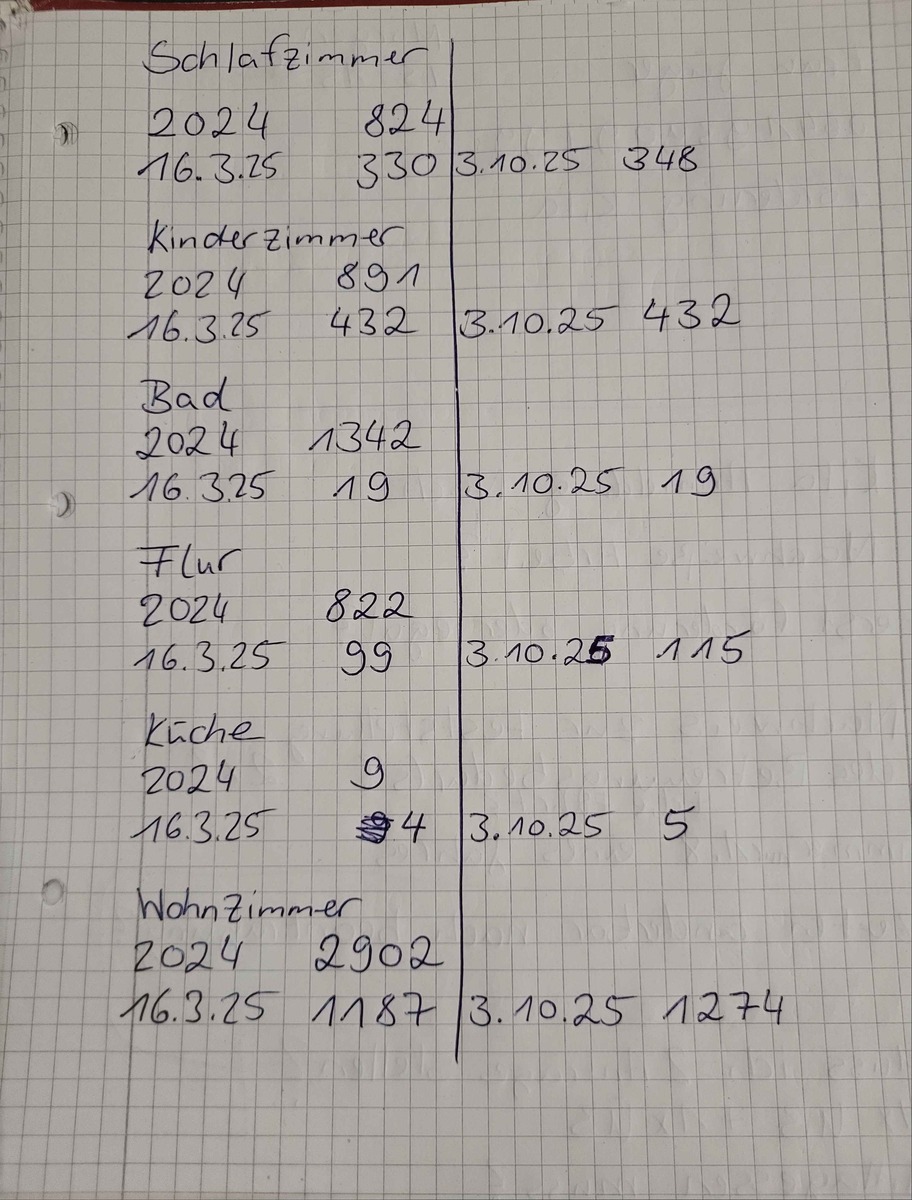 Schlafzimmer
2024 824
16.3.25 330 3.10.25 348
Kinderzimmer
2024 891
16.3.25 432 3.10.25 432
Bad
2024 1342
16.3.25 19 3.10.25 19
Flur
2024 822
16.3.25 99 3.10.25 115
Küche
2024 9
16.3.25 4 3.10.25 5
Wohnzimmer
2024 2902
16.3.25 1187 3.10.25 1274